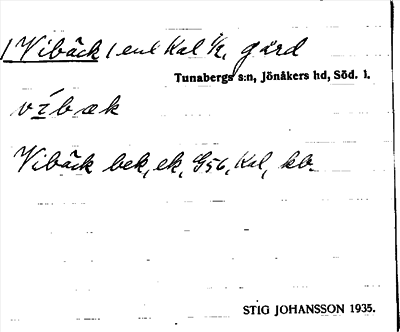 (Vibäck) enl Kal 1/2, gård
Tunabergs s:n, Jönåkers hd, Söd. l.
vìbæk
Vibäck bek, ek, G56, Kal, kb.
STIG JOHANSSON 1935.